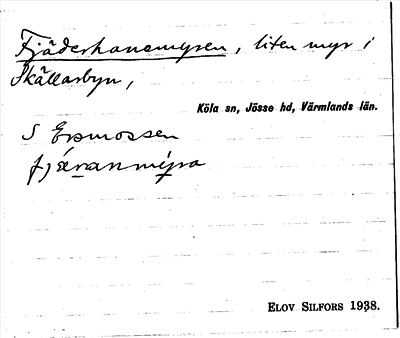 Fjäderhanemyren, liten myr i
Skällarbyn,
Köla sn, Jösse hd, Värmlands län.
S Ersmossen
fjæranmyra
ELOV SILFORS 1938.